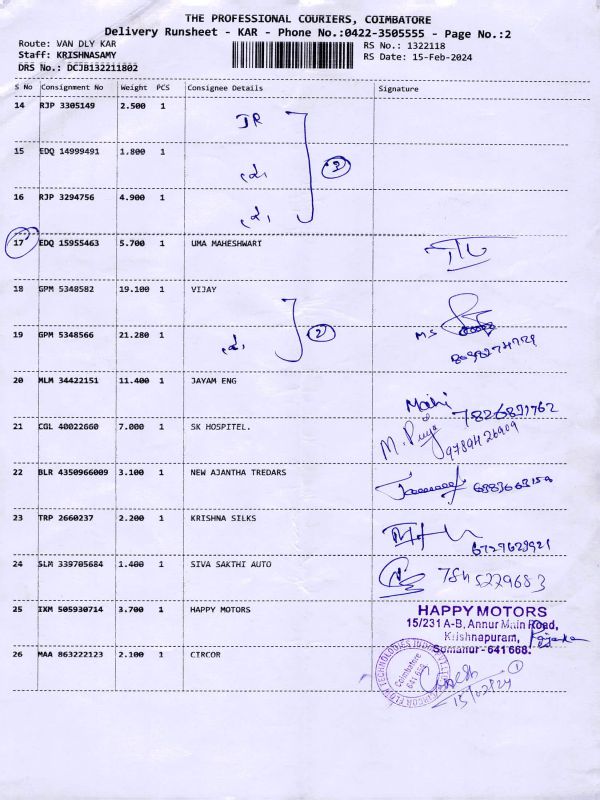 THE PROFESSIONAL COURIERS, COIMBATORE
Delivery Runsheet - KAR - Phone No.:0422-3505555 - Page No.:2
Route: VAN DLY KAR
RS No.: 1322118
Staff: KRISHNASAMY
RS Date: 15-Feb-2024
DRS No.: DCJB132211802
S No Consignment No Weight PCS Consignee Details Signature
14 RJP 3305149 2.500 1
15 EDQ 14999491 1.800 1
2
16 RJP 3294756 4.900 1
17 EDQ 15955463 5.700 1 UMA MAHESHWARI
18 GPM 5348582 19.100 1 VIJAY
19 GPM 5348566 21.280 1
2
M.S
20 MLM 34422151 11.400 1 JAYAM ENG
Mahi
7826831762
21 CGL 40022660 7.000 1 SK HOSPITEL.
M. Priya
9789426909
22 BLR 4350966009 3.100 1 NEW AJANTHA TREDARS
23 TRP 2660237 2.200 1 KRISHNA SILKS
24 SLM 339705684 1.400 1 SIVA SAKTHI AUTO
7845229683
25 IXM 505930714 3.700 1 HAPPY MOTORS
HAPPY MOTORS
15/231 A-B, Annur Main Road,
Krishnapuram,
Somanur - 641 668.
26 MAA 863222123 2.100 1 CIRCOR
Coimbatore
641 668
1
15/02/24